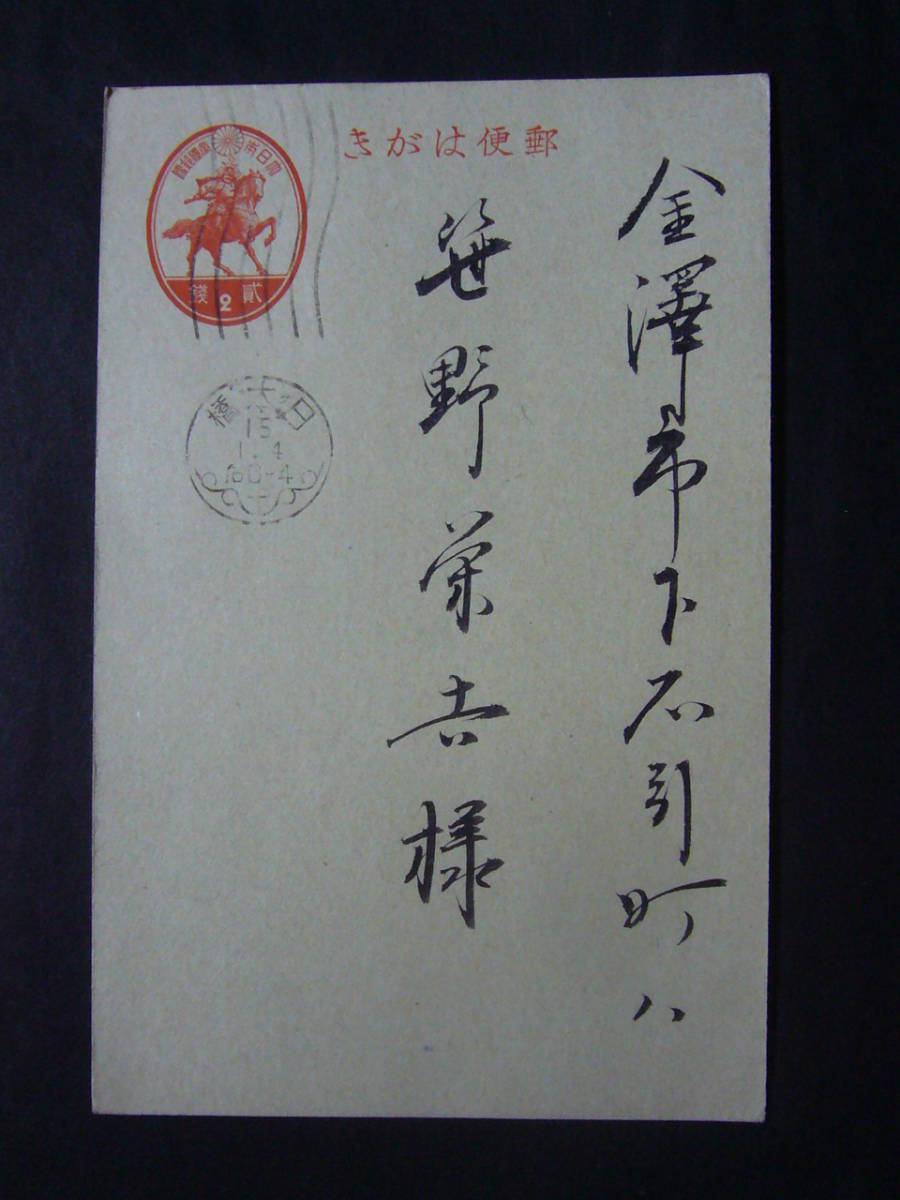 郵便はがき
大日本帝國郵便
貳2錢
15
1.4
金澤市下石引町八
笹野栄吉様